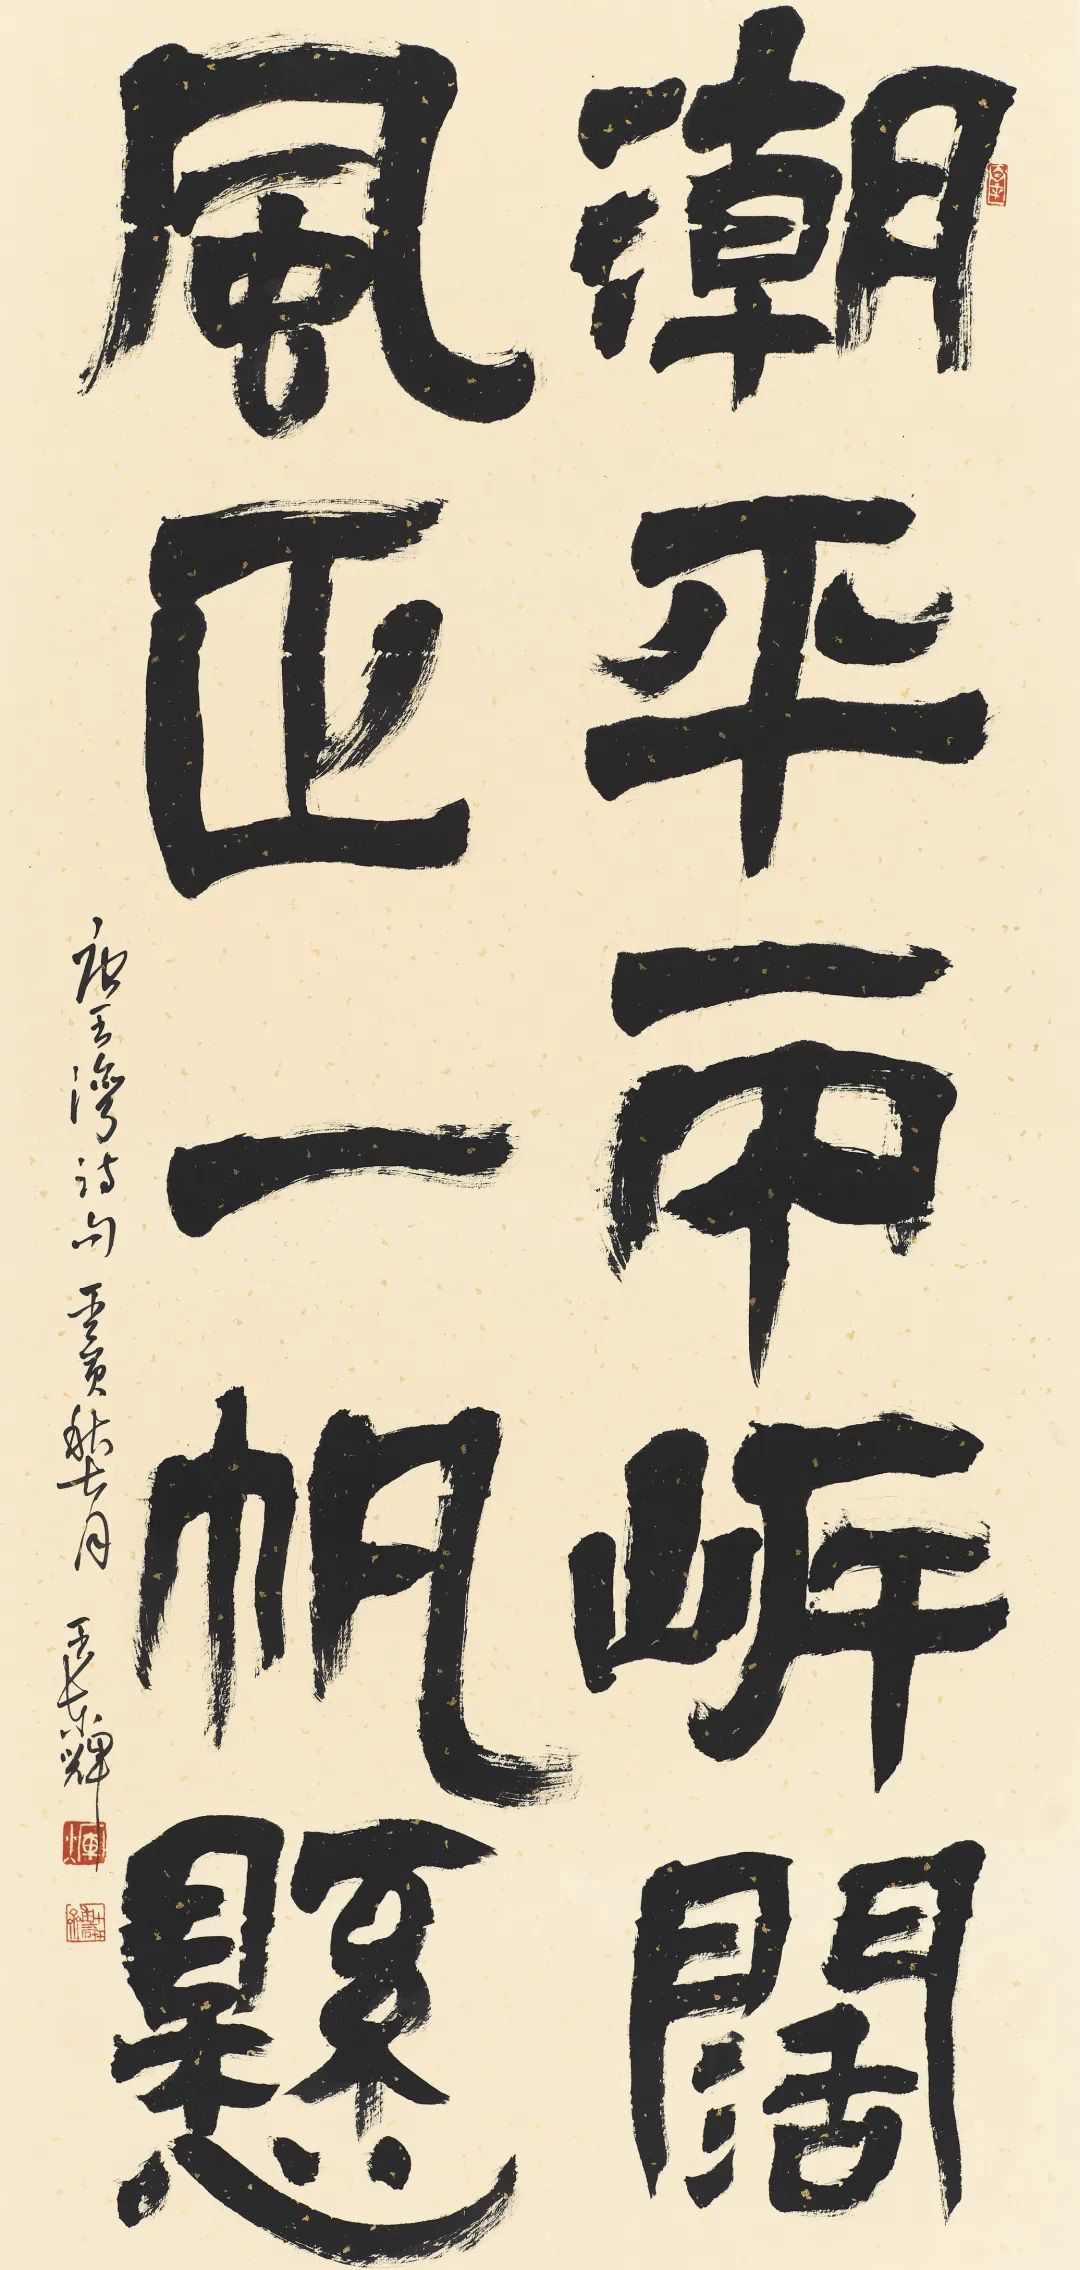 潮平兩岸闊
風正一帆懸
唐王灣诗句 壬寅秋七月 王東輝